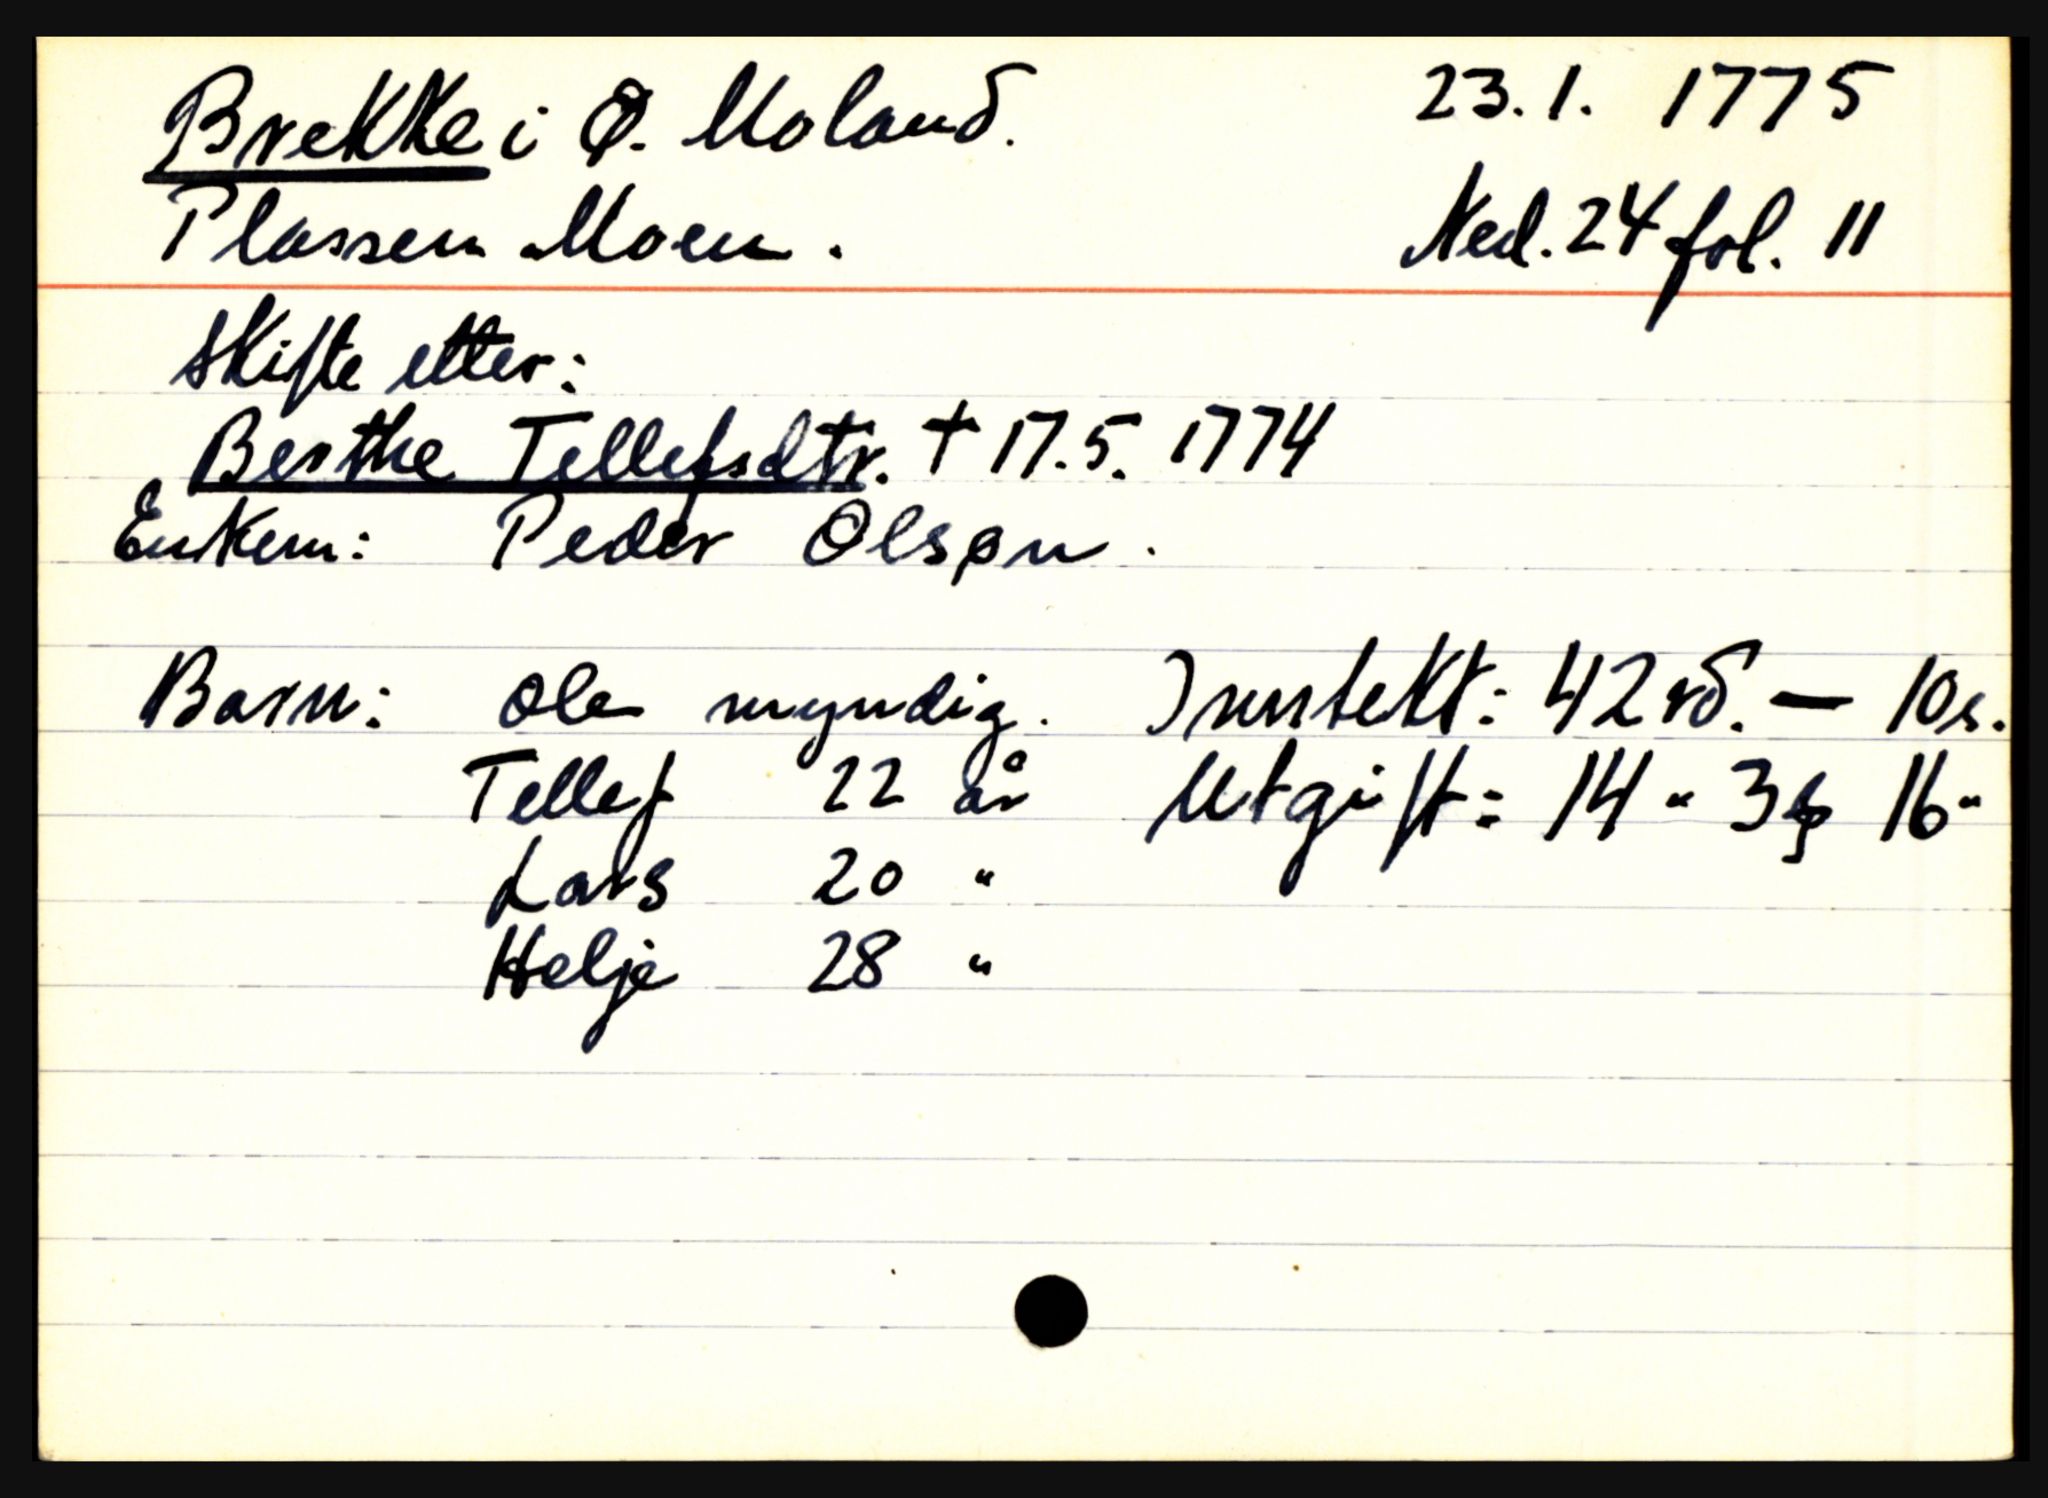 Brekke i Ø. Moland. 23.1. 1775
Plassen Moen. Ned. 24 fol. 11
Skifte etter:
Berthe Tellefsdtr. † 17.5. 1774
Enkem: Peder Olsøn.
Barn: Ole myndig. Inntekt: 42 rd. — 10 s.
Tellef 22 år Utgift: 14 " 3 16 "
Lars 20 "
Helje 28 "